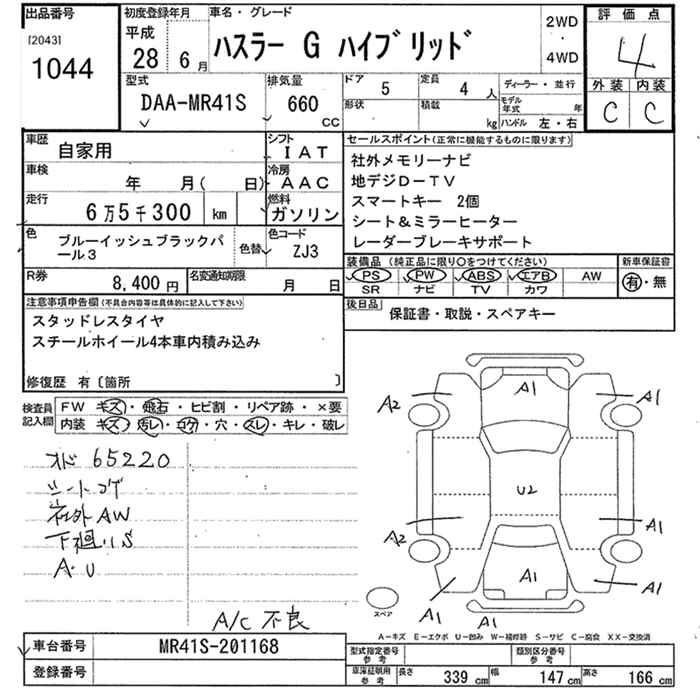 出品番号
[2043]
1044
初度登録年月
平成
28 6月
車名・グレード
ハスラー G ハイブリッド
2WD
・
4WD
評価点
4
外装 内装
C C
型式
DAA-MR41S
排気量
660
CC
ドア 5
形状
定員 4人
積載 kg
ディーラー・並行
モデル年式 年
ハンドル 左・右
車歴
自家用
シフト
IAT
車検
年 月( 日)
冷房
AAC
走行
6万5千300 km
燃料
ガソリン
色
ブルーイッシュブラックパール3
色替
色コード
ZJ3
R券
8,400円
名変通知期限
月 日
セールスポイント(正常に機能するものに限ります)
社外メモリーナビ
地デジD-TV
スマートキー 2個
シート&ミラーヒーター
レーダーブレーキサポート
装備品(純正品に限り○をつけてください)
新車保証書
PS PW ABS エアB AW
SR ナビ TV カワ
有・無
後日品
保証書・取説・スペアキー
注意事項申告欄(不具合内容等は具体的に記入して下さい)
スタッドレスタイヤ
スチールホイール4本車内積み込み
修復歴 有〔箇所 〕
検査員記入欄
FW キズ・飛石・ヒビ割・リペア跡・×要
内装 キズ・汚レ・コゲ・穴・スレ・キレ・破レ
オド 65220
シートコゲ
社外AW
下廻リS
A・U
A/C 不良
A1
A2
A1
U2
A2
A1
A1
A1
A1
A1
スペア
A-キズ E-エクボ U-凹み W-補修跡 S-サビ C-腐食 XX-交換済
車台番号
MR41S-201168
登録番号
型式指定番号
参考
類別区分番号
参考
車庫証明用
参考
長さ 339 cm
幅 147 cm
高さ 166 cm